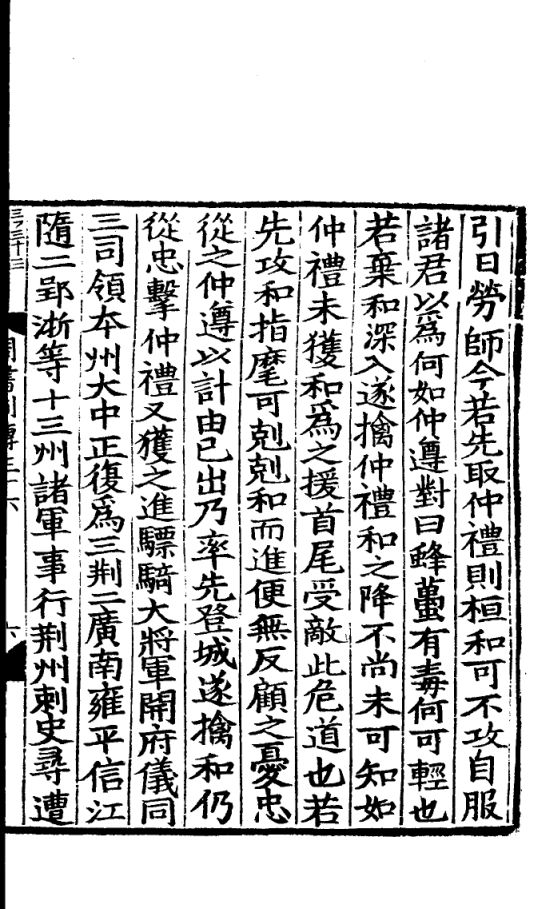 引日勞師今若先取仲禮則桓和可不攻自服
諸君以爲何如仲遵對曰蜂蠆有毒何可輕也
若棄和深入遂擒仲禮和之降不尚未可知如
仲禮未獲和爲之援首尾受敵此危道也若
先攻和指麾可剋剋和而進便無反顧之憂忠
從之仲遵以計由已出乃率先登城遂擒和仍
從忠擊仲禮又獲之進驃騎大將軍開府儀同
三司領本州大中正復爲三荆二廣南雍平信江
隨二郢淅等十三州諸軍事行荆州刺史尋遭
六